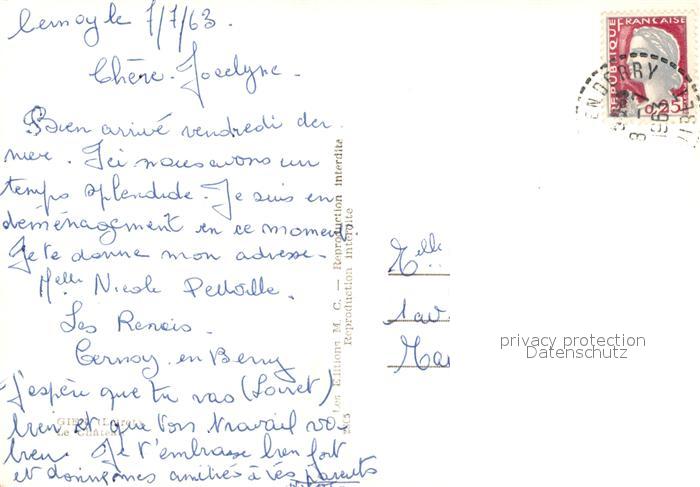 Cernoy le 7/7/63.
Chère Jocelyne.
Bien arrivé vendredi der
nier. Ici nous avons un
temps splendide. Je suis en
déménagement en ce moment
Je te donne mon adresse.
Melle Nicole
Les
Cernoy en Berry
(Loiret)
J'espère que tu vas
bien et que ton travail va
bien. Je t'embrasse bien fort
et donne mes amitiés à tes parents
GIEN (Loiret)
Le Château
Les Editions M. C. — Reproduction interdite
Reproduction Interdite
REPUBLIQUE FRANÇAISE
0,25
EN BERRY
8
1963
Melle
1 av
privacy protection
Datenschutz